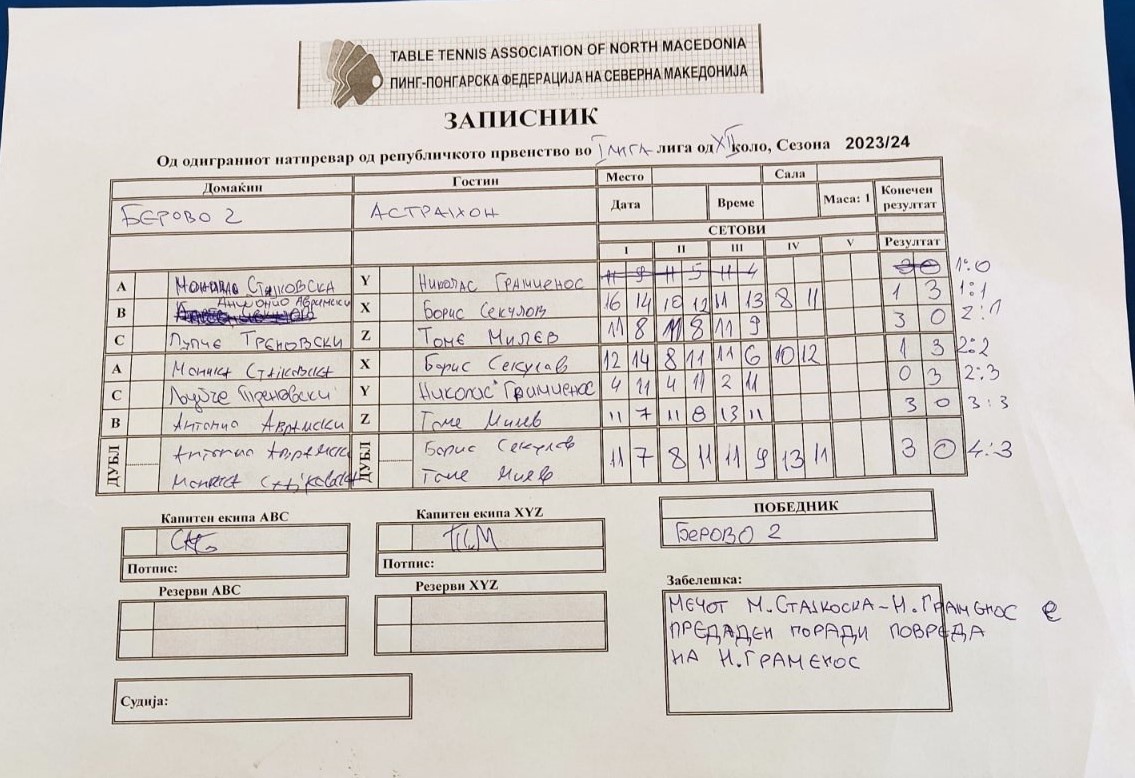 TABLE TENNIS ASSOCIATION OF NORTH MACEDONIA
ПИНГ-ПОНГАРСКА ФЕДЕРАЦИЈА НА СЕВЕРНА МАКЕДОНИЈА
ЗАПИСНИК
Од одиграниот натпревар од републичкото првенство во I ЛИГА лига од XII коло, Сезона 2023/24
Домаќин Гостин Место Сала
БЕРОВО 2 АСТРАИОН Дата Време Маса: 1 Конечен резултат
СЕТОВИ
I II III IV V Резултат
A СТАЈКОВСКА Y НИКОЛАС ГРАМЕНОС 11 9 11 5 11 4 3 0 1:0
B Антонио Аврамски X БОРИС СЕКУЛОВ 16 14 10 12 11 13 8 11 1 3 1:1
C ЛУПЧЕ ТРЕНОВСКИ Z ТОМЕ МИЛЕВ 11 8 11 8 11 9 3 0 2:1
A МОНИКА СТАЈКОВСКА X БОРИС СЕКУЛОВ 12 14 8 11 11 6 10 12 1 3 2:2
C Љупче Треновски Y Николос Граминенос 4 11 4 11 2 11 0 3 2:3
B Антонио Аврамски Z Томе Милев 11 7 11 8 13 11 3 0 3:3
ДУБЛ Антонио Аврамски ДУБЛ Борис Секулов 11 7 8 11 11 9 13 11 3 0 4:3
Моника Стајковска Томе Милев
Капитен екипа ABC Капитен екипа XYZ ПОБЕДНИК
БЕРОВО 2
Потпис: Потпис:
Резерви ABC Резерви XYZ Забелешка:
МЕЧОТ М. СТАЈКОСКА - Н. ГРАМЕНОС Е
ПРЕДАДЕН ПОРАДИ ПОВРЕДА
НА Н. ГРАМЕНОС
Судија: